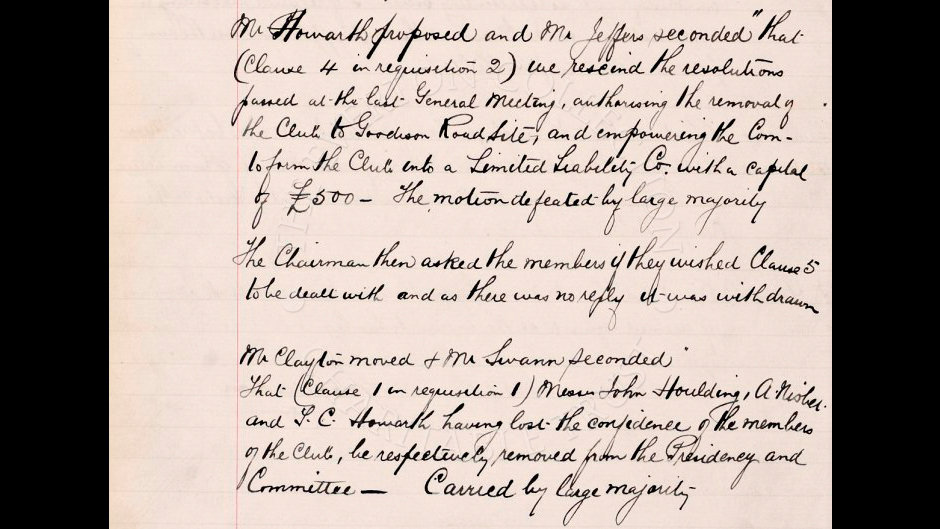 Mr Howarth proposed and Mr Jeffers seconded "that
(Clause 4 in requisition 2) we rescind the resolutions
passed at the last General Meeting, authorising the removal of
the Club to Goodison Road Site, and empowering the Com-
to form the Club into a Limited Liability Co. with a capital
of £500 — The motion defeated by large majority
The Chairman then asked the members if they wished Clause 5
to be dealt with and as there was no reply it was withdrawn
Mr Clayton moved & Mr Swann seconded "
That (Clause 1 in requisition 1) Messrs John Houlding, A. Nisbet
and T. C. Howarth having lost the confidence of the members
of the Club, be respectively removed from the Presidency and
Committee — Carried by large majority